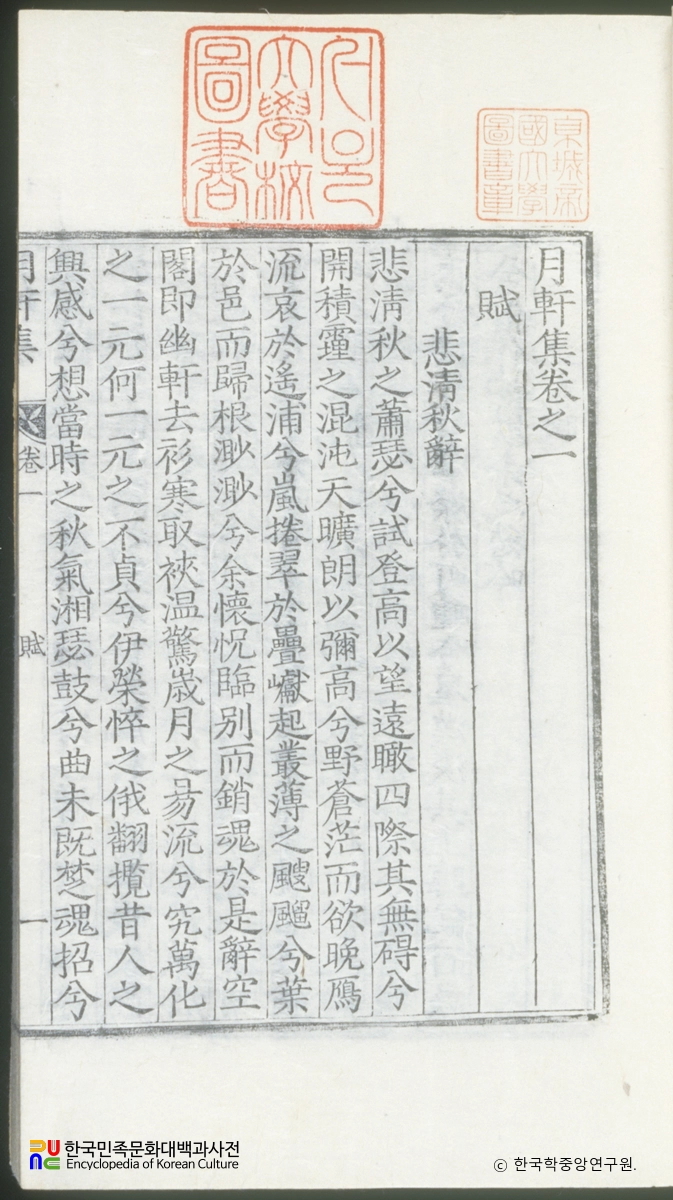 月軒集卷之一
賦
悲清秋辭
悲清秋之蕭瑟兮試登高以望遠瞰四際其無碍兮
開積霾之混沌天曠朗以彌高兮野蒼茫而欲晚鴈
流哀於遙浦兮嵐捲翠於疊巘起叢薄之颼飀兮葉
於邑而歸根渺渺兮余懷怳臨別而銷魂於是辭空
閣即幽軒去衫寒取裌温驚歲月之易流兮究萬化
之一元何一元之不貞兮伊榮悴之俄翻攬昔人之
興感兮想當時之秋氣湘瑟鼓兮曲未既楚魂招兮
月軒集 卷一 賦 一
圖書
東城帝
國大學
圖書章
한국민족문화대백과사전
Encyclopedia of Korean Culture
ⓒ 한국학중앙연구원.